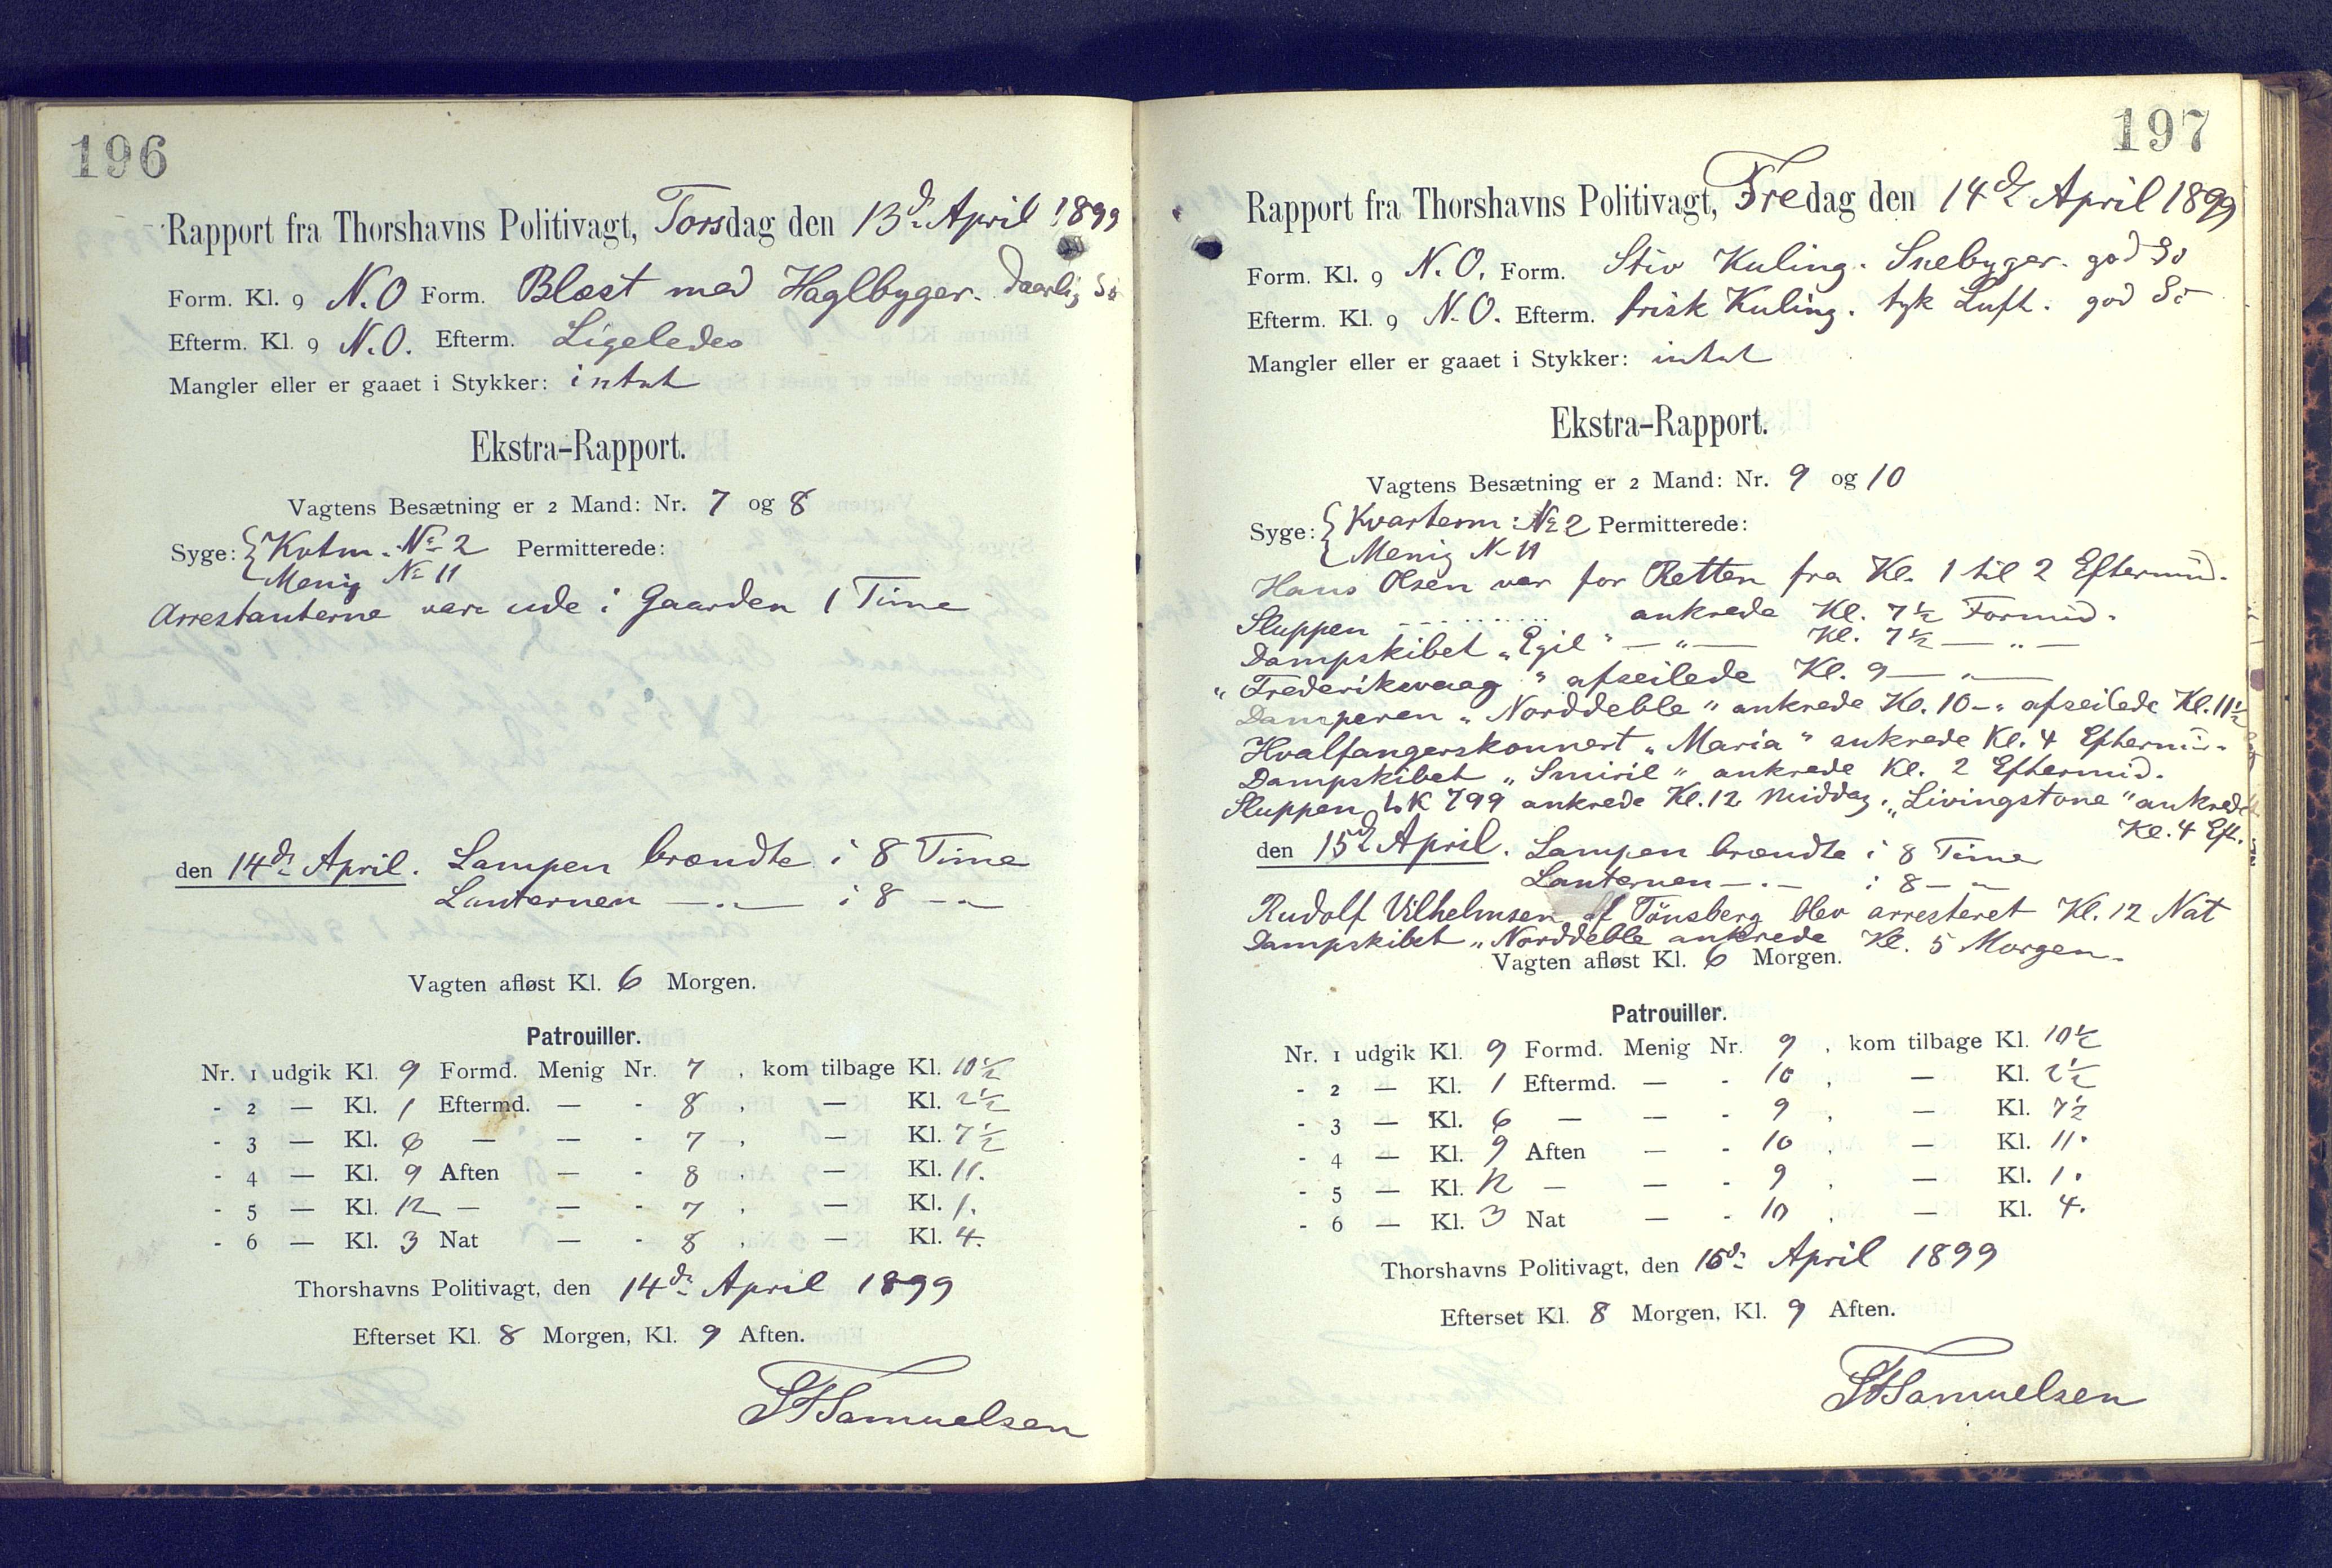 196
Rapport fra Thorshavns Politivagt, Torsdag den 13de April 1899
Form. Kl. 9 N.O Form. Blæst med Haglbyger. daarlig Sö
Efterm. Kl. 9 N.O. Efterm. Ligeledes
Mangler eller er gaaet i Stykker: intet
Ekstra-Rapport.
Vagtens Besætning er 2 Mand: Nr. 7 og 8
Syge: { Kvtm. No 2 Permitterede:
Menig No 11
Arrestanterne vare ude i Gaarden 1 Time
den 14de April. Lampen brændte i 8 Time
Lanternen — " — i 8 — "
Vagten afløst Kl. 6 Morgen.
Patrouiller.
Nr. 1 udgik Kl. 9 Formd. Menig Nr. 7 , kom tilbage Kl. 10½
- 2 — Kl. 1 Eftermd. — - 8 , — Kl. 2½
- 3 — Kl. 6 — — - 7 , — Kl. 7½
- 4 — Kl. 9 Aften — - 8 , — Kl. 11.
- 5 — Kl. 12 — — - 7 , — Kl. 1.
- 6 — Kl. 3 Nat — - 8 , — Kl. 4.
Thorshavns Politivagt, den 14de April 1899
Efterset Kl. 8 Morgen, Kl. 9 Aften.
Samuelsen
197
Rapport fra Thorshavns Politivagt, Fredag den 14de April 1899
Form. Kl. 9 N.O. Form. Stiv Kuling. Snebyger. god Sö
Efterm. Kl. 9 N.O. Efterm. frisk Kuling. tyk Luft. god Sö
Mangler eller er gaaet i Stykker: intet
Ekstra-Rapport.
Vagtens Besætning er 2 Mand: Nr. 9 og 10
Syge: { Kvarterm: No 2 Permitterede:
Menig No 11
Hans Olsen var for Retten fra Kl. 1 til 2 Eftermid.
Sluppen .......... ankrede Kl. 7½ Formid.
Dampskibet „Egil" — " — Kl. 7½ — " —
„Frederiksvaag" afseilede Kl. 9 — " —
Damperen „Norddeble" ankrede Kl. 10 — " afseilede Kl. 11½
Hvalfangerskonnert „Maria" ankrede Kl. 4 Eftermid.
Dampskibet „Smiril" ankrede Kl. 2 Eftermid.
Sluppen LK 799 ankrede Kl. 12 Middag. „Livingstone" ankrede
Kl. 4 Eft.
den 15de April. Lampen brændte i 8 Time
Lanternen — " — i 8 — "
Rudolf Vilhelmsen af Tönsberg blev arresteret Kl. 12 Nat
Dampskibet „Norddeble ankrede Kl. 5 Morgen.
Vagten afløst Kl. 6 Morgen.
Patrouiller.
Nr. 1 udgik Kl. 9 Formd. Menig Nr. 9 , kom tilbage Kl. 10½
- 2 — Kl. 1 Eftermd. — - 10 , — Kl. 2½
- 3 — Kl. 6 — — - 9 , — Kl. 7½
- 4 — Kl. 9 Aften — - 10 , — Kl. 11.
- 5 — Kl. 12 — — - 9 , — Kl. 1.
- 6 — Kl. 3 Nat — - 10 , — Kl. 4.
Thorshavns Politivagt, den 15de April 1899
Efterset Kl. 8 Morgen, Kl. 9 Aften.
Samuelsen